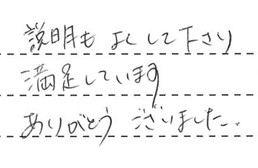 説明も よくして下さり
満足しています
ありがとう ございました。